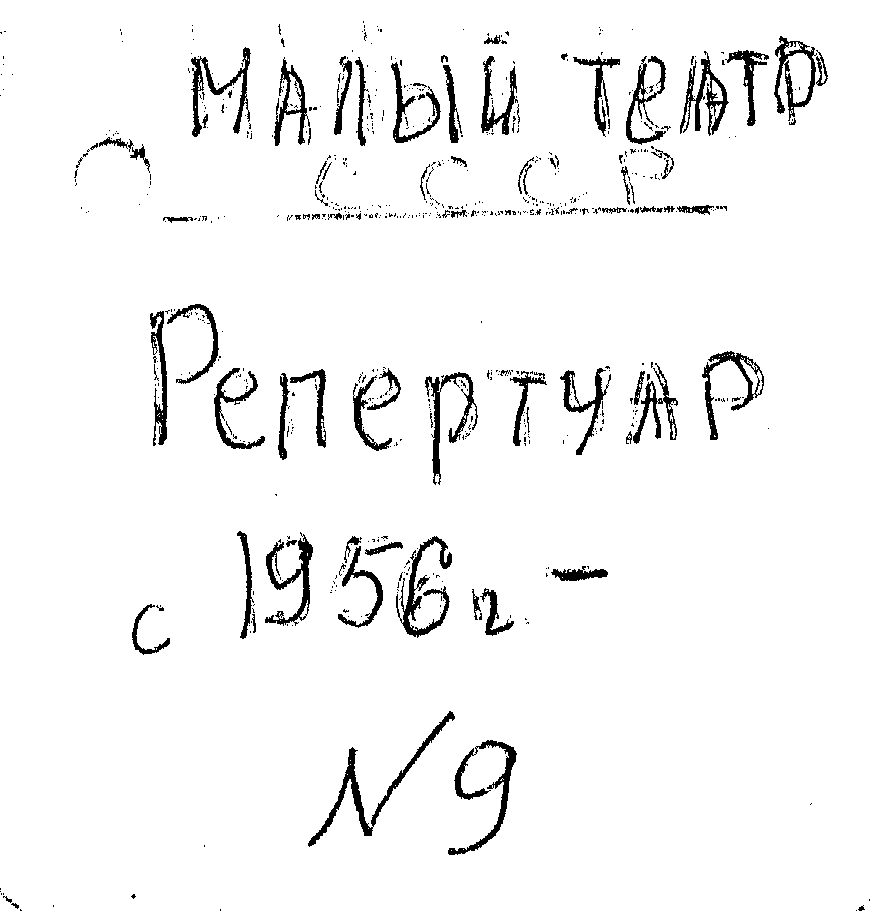 Малый театр
СССР
Репертуар
с 1956 г. –
N 9